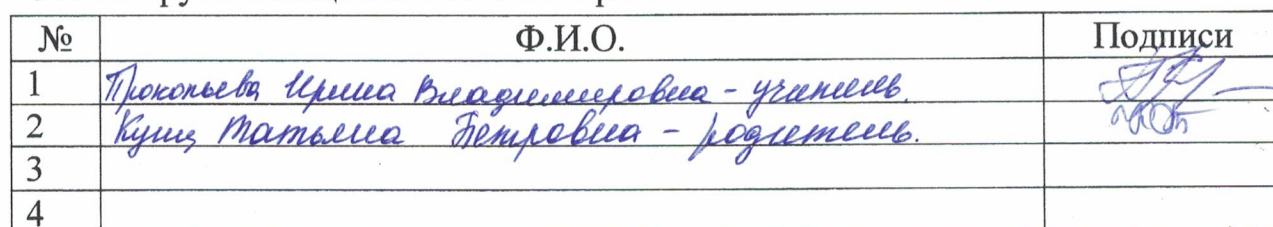 № Ф.И.О. Подписи
1 Прокопьева Ирина Владимировна - учитель.
2 Кущ Татьяна Петровна - родитель.
3
4